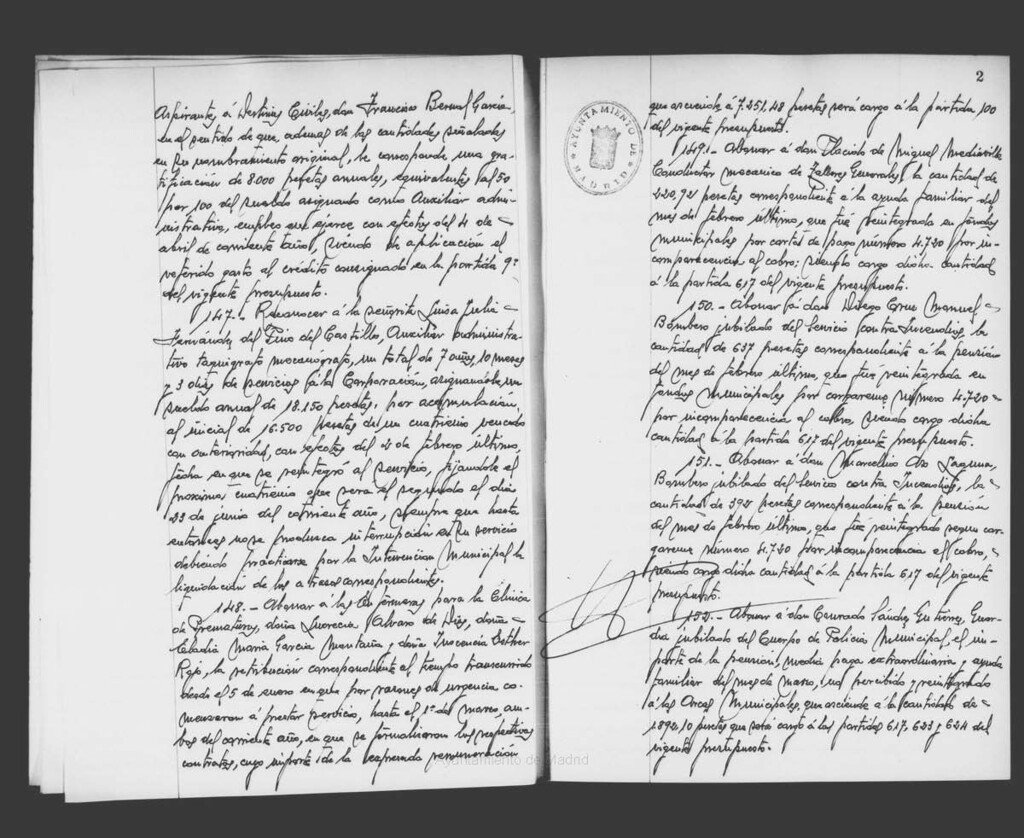 Aspirantes á Destinos Civiles, don Francisco Bernal Garcia,
en el sentido de que, ademas de las cantidades señaladas
en su nombramiento original, le corresponde una gra-
tificación de 8.000 pesetas anuales, equivalentes al 50
por 100 del sueldo asignado como Auxiliar admi-
nistrativo, empleo que ejerce con efectos del 4 de
abril de corriente año, siendo de aplicación el
referido gasto al crédito consignado en la partida 9ª
del vigente presupuesto.
147.- Reconocer á la señorita Luisa Julia
Fernández del Pino del Castillo, Auxiliar administra-
tivo taquigrafo mecanografo, un total de 7 años, 10 meses
y 3 dias de servicios á la Corporación, asignandole un
sueldo anual de 18.150 pesetas, por acumulación,
al inicial de 16.500 pesetas de un cuatrienio vencido
con anterioridad, con efectos del 2 de febrero último,
fecha en que se reintegró al servicio, fijandole el
proximo cuatrienio que será el segundo el dia
23 de junio del corriente año, siempre que hasta
entonces no se produzca interrupción en su servicio
debiendo practicarse por la Intervención Municipal la
liquidación de los atrasos correspondientes.
148.- Abonar á las Enfermeras para la Clinica
de Prematuros, doña Lucrecia Alvaro de Diez, doña
Claudia Maria Garcia Montaña y doña Inocencia Esther
Rojo, la retribución correspondiente al tiempo transcurrido
desde el 5 de enero en que por razones de urgencia co-
menzaron á prestar servicio, hasta el 1º de Marzo, am-
bos del corriente año, en que se formalizaron los respectivos
contratos, cuyo importe de la expresada remuneración
2
que asciende á 7.251,48 pesetas será cargo á la partida 100
del vigente presupuesto.
149.- Abonar á don Placido de Miguel Mediavilla
Conductor mecanico de Talleres Generales, la cantidad de
220,92 pesetas correspondiente á la ayuda familiar del
mes de febrero último, que fué reintegrada en fondos
municipales por carta de pago número 4.720 por in-
comparecencia al cobro; siendo cargo dicha cantidad
á la partida 617 del vigente presupuesto.
150.- Abonar á don Diego Manuel
Bombero jubilado del Servicio contra Incendios, la
cantidad de 637 pesetas correspondiente á la pensión
del mes de febrero último, que fue reintegrada en
fondos Municipales por cargareme número 4.720
por incomparecencia al cobro, siendo cargo dicha
cantidad á la partida 617 del vigente presupuesto.
151.- Abonar á don Marcelino Laguna,
Bombero jubilado del Servicio contra Incendios, la
cantidad de 392 pesetas correspondiente á la pensión
del mes de febrero último, que fue reintegrada segun car-
gareme número 4.720 por incomparecencia al cobro,
siendo cargo dicha cantidad á la partida 617 del vigente
presupuesto.
152.- Abonar á don Conrado Sánchez Gutierrez, Guar-
dia jubilado del Cuerpo de Policia Municipal, el im-
porte de la pensión, media paga extraordinaria y ayuda
familiar del mes de Marzo, no percibido y reintegrado
á las Arcas Municipales, que asciende á la cantidad de
1.892,10 pesetas que será cargo á las partidas 617, 633 y 634 del
vigente presupuesto.
AYUNTAMIENTO DE MADRID
Ayuntamiento de Madrid